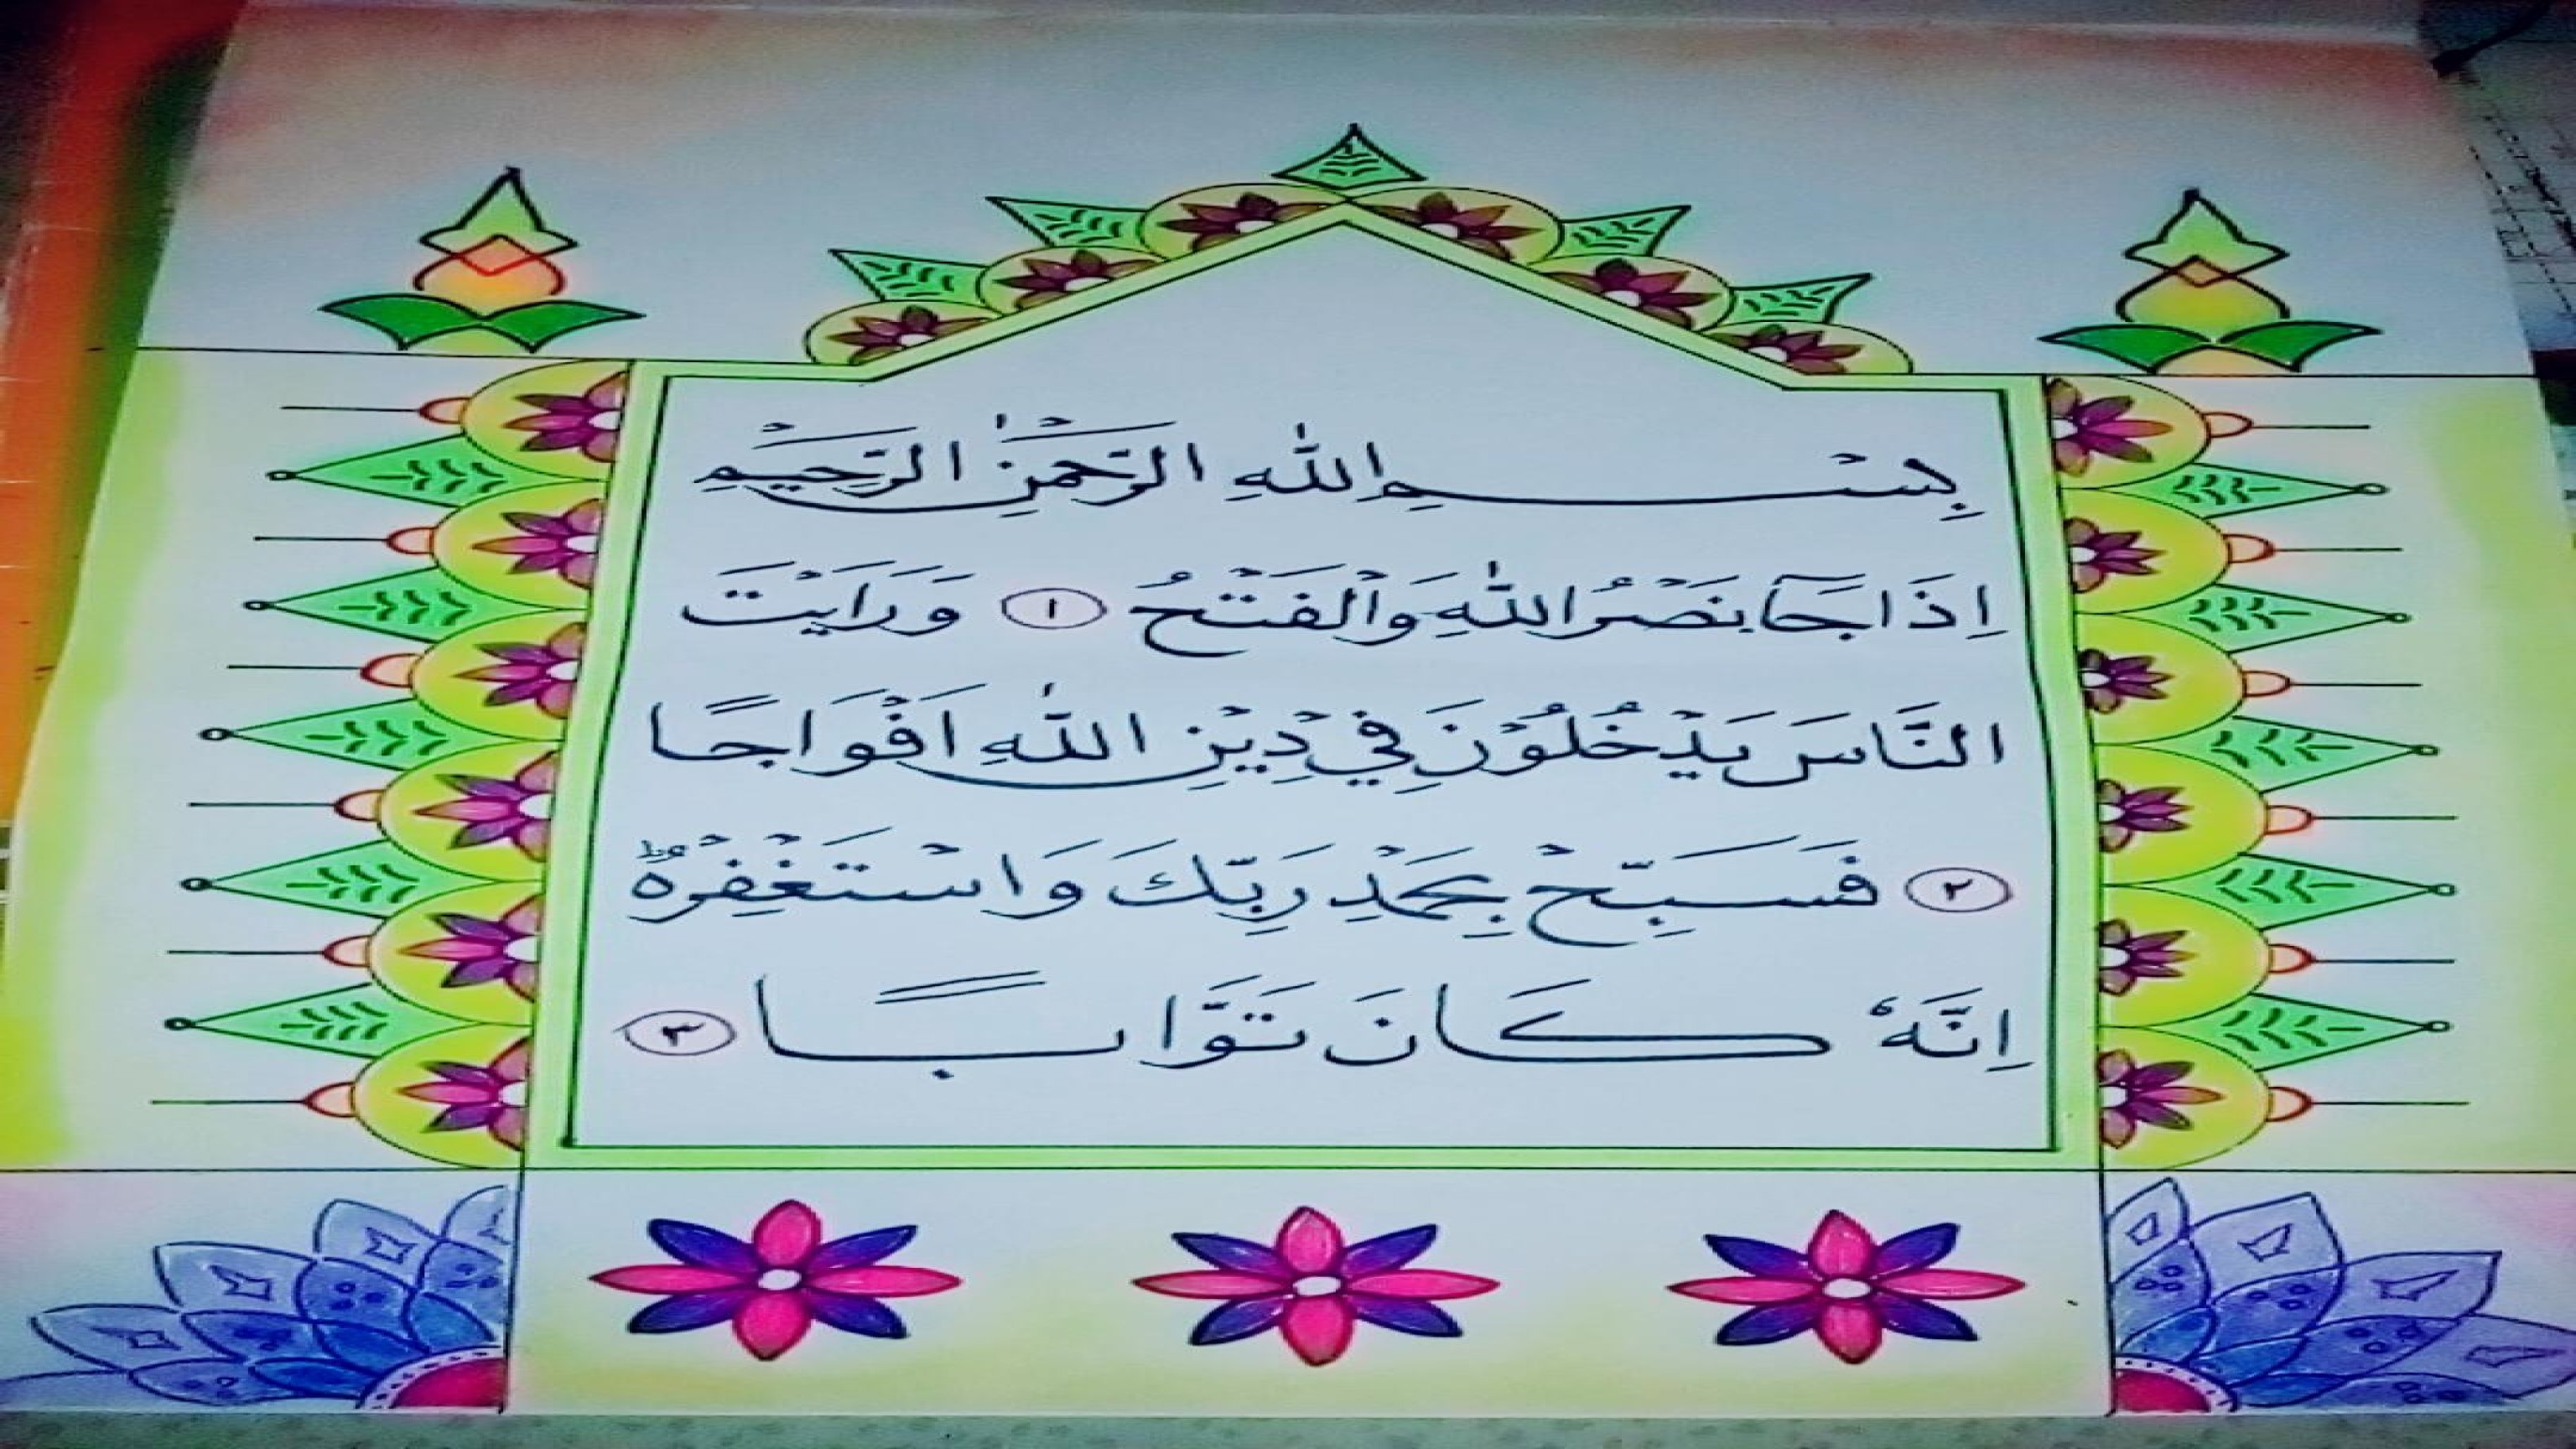 بِسْــــــمِ اللّٰهِ الرَّحْمٰنِ الرَّحِيْمِ
اِذَا جَآءَ نَصْرُ اللّٰهِ وَالْفَتْحُ ١ وَرَاَيْتَ
النَّاسَ يَدْخُلُوْنَ فِيْ دِيْنِ اللّٰهِ اَفْوَاجًا
٢ فَسَبِّحْ بِحَمْدِ رَبِّكَ وَاسْتَغْفِرْهُ ؕ
اِنَّهٗ كَانَ تَوَّابًا ٣